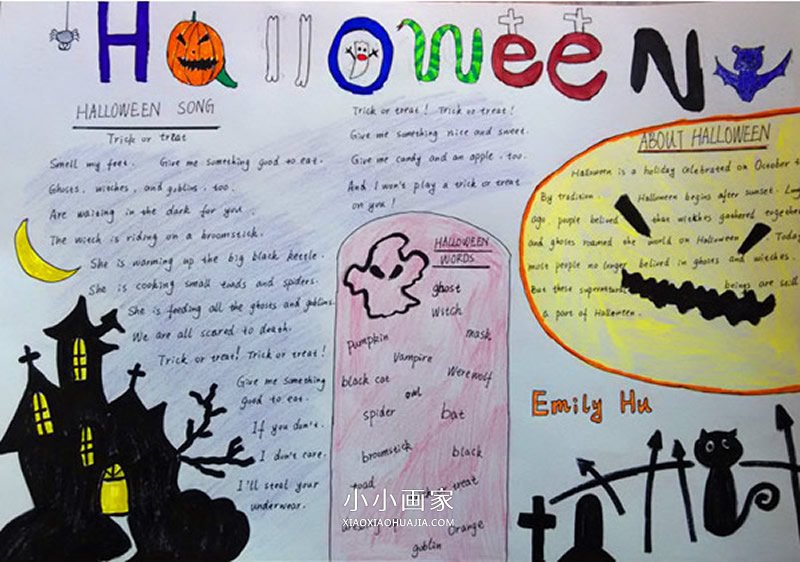 Halloween
HALLOWEEN SONG
Trick or treat
Smell my feet. Give me something good to eat.
Ghosts, witches, and goblins, too.
Are waiting in the dark for you.
The witch is riding on a broomstick.
She is warming up the big black kettle.
She is cooking small toads and spiders.
She is feeding all the ghosts and goblins.
We are all scared to death.
Trick or treat! Trick or treat!
Give me something
good to eat.
If you don't.
I don't care.
I'll steal your
underwear.
Trick or treat! Trick or treat!
Give me something nice and sweet.
Give me candy and an apple, too.
And I won't play a trick or treat
on you!
HALLOWEEN
WORDS
ghost
witch
pumpkin
mask
Vampire
Werewolf
black cat
owl
spider
bat
broomstick
black
toad
treat
Orange
goblin
ABOUT HALLOWEEN
Halloween is a holiday celebrated on October
By tradition, Halloween begins after sunset. Long
ago, people believed that witches gathered together
and ghosts roamed the world on Halloween. Today
most people no longer belived in ghosts and witches.
But these supernatural beings are still
a part of Halloween.
Emily Hu
小小画家
XIAOXIAOHUAJIA.COM